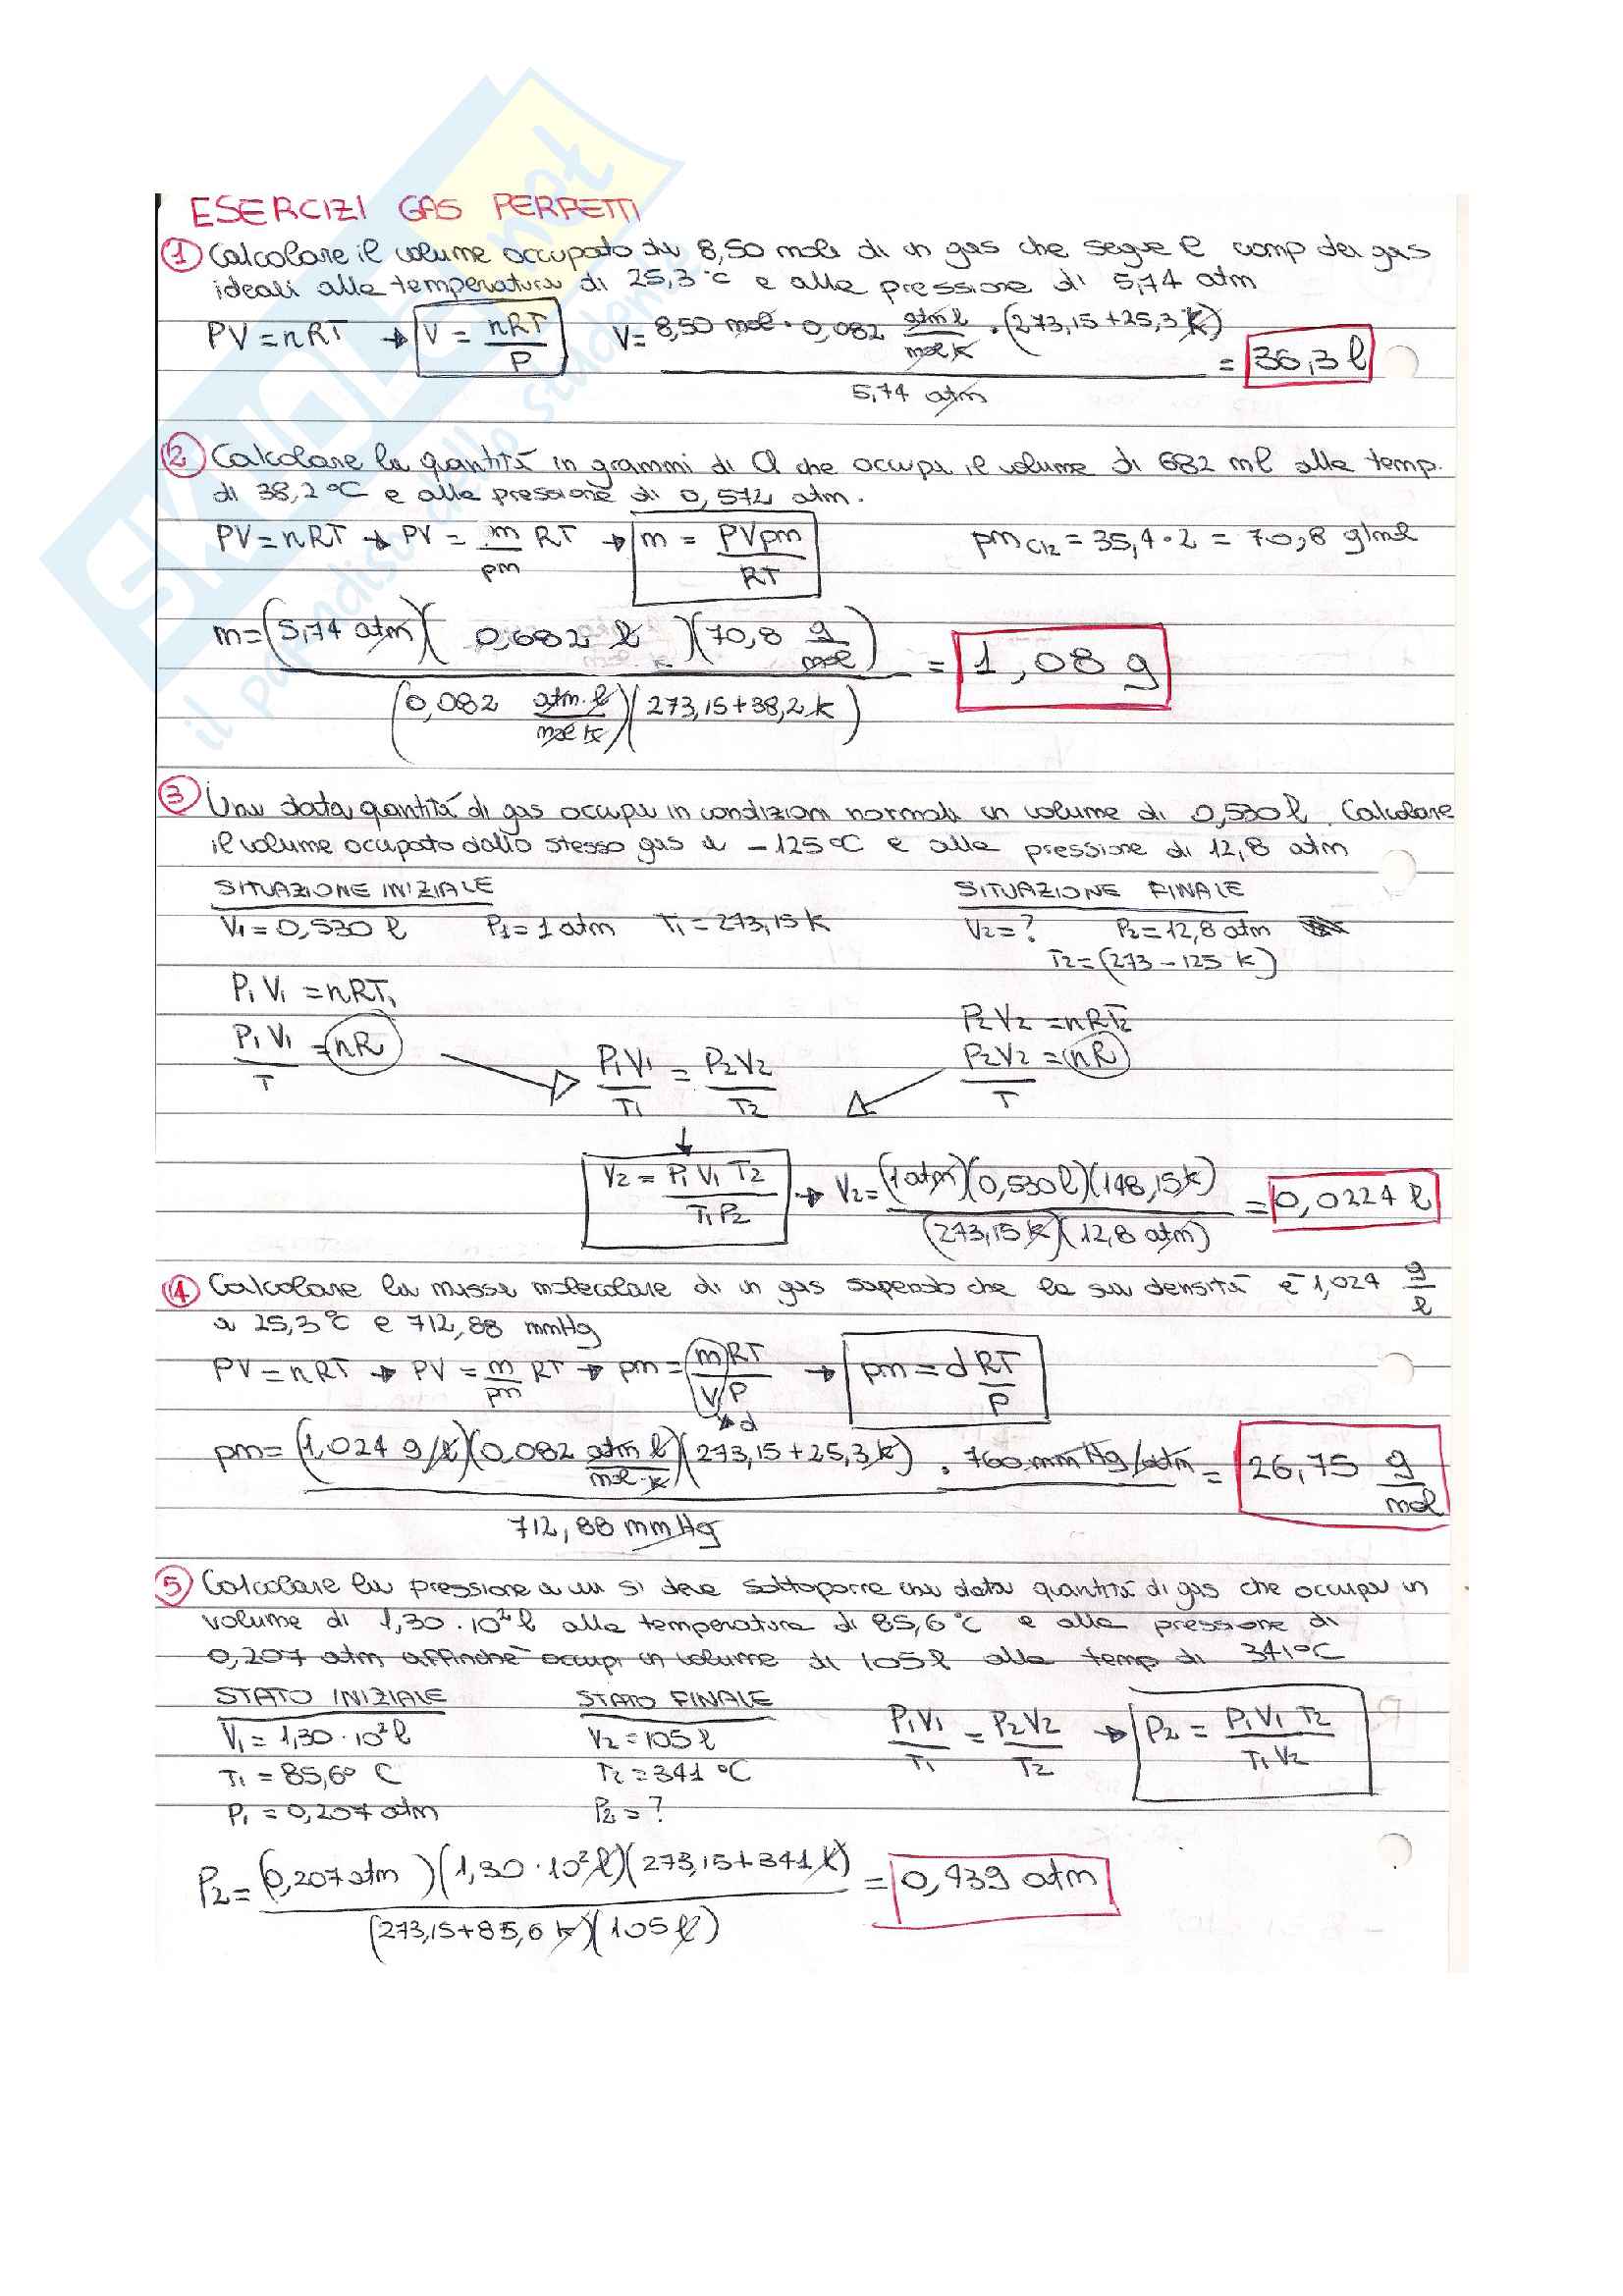 SKUOLA.net
il paradiso dello studente
ESERCIZI GAS PERFETTI
1 Calcolare il volume occupato da 8,50 moli di un gas che segue il comp dei gas
ideali alla temperatura di 25,3 °C e alla pressione di 5,74 atm
PV = nRT → V = nRT/P V = 8,50 mol · 0,082 atm l/mol K · (273,15 + 25,3 K) / 5,74 atm = 36,3 l
2 Calcolare la quantità in grammi di Cl che occupa il volume di 682 ml alla temp.
di 38,2 °C e alla pressione di 0,572 atm.
PV = nRT → PV = m/pm RT → m = PVpm/RT pm Cl2 = 35,4 · 2 = 70,8 g/mol
m = (5,74 atm)(0,682 l)(70,8 g/mol) / (0,082 atm·l/mol K)(273,15 + 38,2 K) = 1,08 g
3 Una data quantità di gas occupa in condizioni normali un volume di 0,530 l. Calcolare
il volume occupato dallo stesso gas a -125 °C e alla pressione di 12,8 atm
SITUAZIONE INIZIALE SITUAZIONE FINALE
V1 = 0,530 l P1 = 1 atm T1 = 273,15 K V2 = ? P2 = 12,8 atm
T2 = (273 - 125 K)
P1 V1 = nRT1
P2 V2 = nRT2
P1 V1/T = nR P1V1/T1 = P2V2/T2 P2V2/T = nR
V2 = P1 V1 T2/T1P2 → V2 = (1 atm)(0,530 l)(148,15 K) / (273,15 K)(12,8 atm) = 0,0224 l
4 Calcolare la massa molecolare di un gas sapendo che la sua densità è 1,024 g/l
a 25,3 °C e 712,88 mmHg
PV = nRT → PV = m/pm RT → pm = mRT/VP → pm = d RT/P
d
pm = (1,024 g/l)(0,082 atm l/mol·K)(273,15 + 25,3 K) · 760 mmHg/atm / 712,88 mmHg = 26,75 g/mol
5 Calcolare la pressione a cui si deve sottoporre una data quantità di gas che occupa un
volume di 1,30 · 10² l alla temperatura di 85,6 °C e alla pressione di
0,207 atm affinchè occupi un volume di 105 l alla temp di 341 °C
STATO INIZIALE STATO FINALE P1V1/T1 = P2V2/T2 → P2 = P1V1 T2/T1 V2
V1 = 1,30 · 10² l V2 = 105 l
T1 = 85,6° C T2 = 341 °C
P1 = 0,207 atm P2 = ?
P2 = (0,207 atm)(1,30 · 10² l)(273,15 + 341 K) / (273,15 + 85,6 K)(105 l) = 0,439 atm